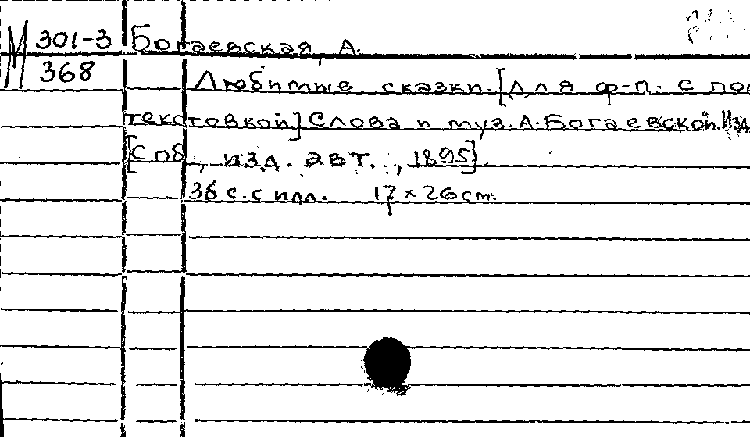 М 301-3 Богаевская, А.
368 Любимые сказки. [Для ф-п. с по
текстовкой] Слова и муз. А. Богаевской. Изд
[Спб., изд. авт., 1895].
36 с. с илл. 17 × 26 см.